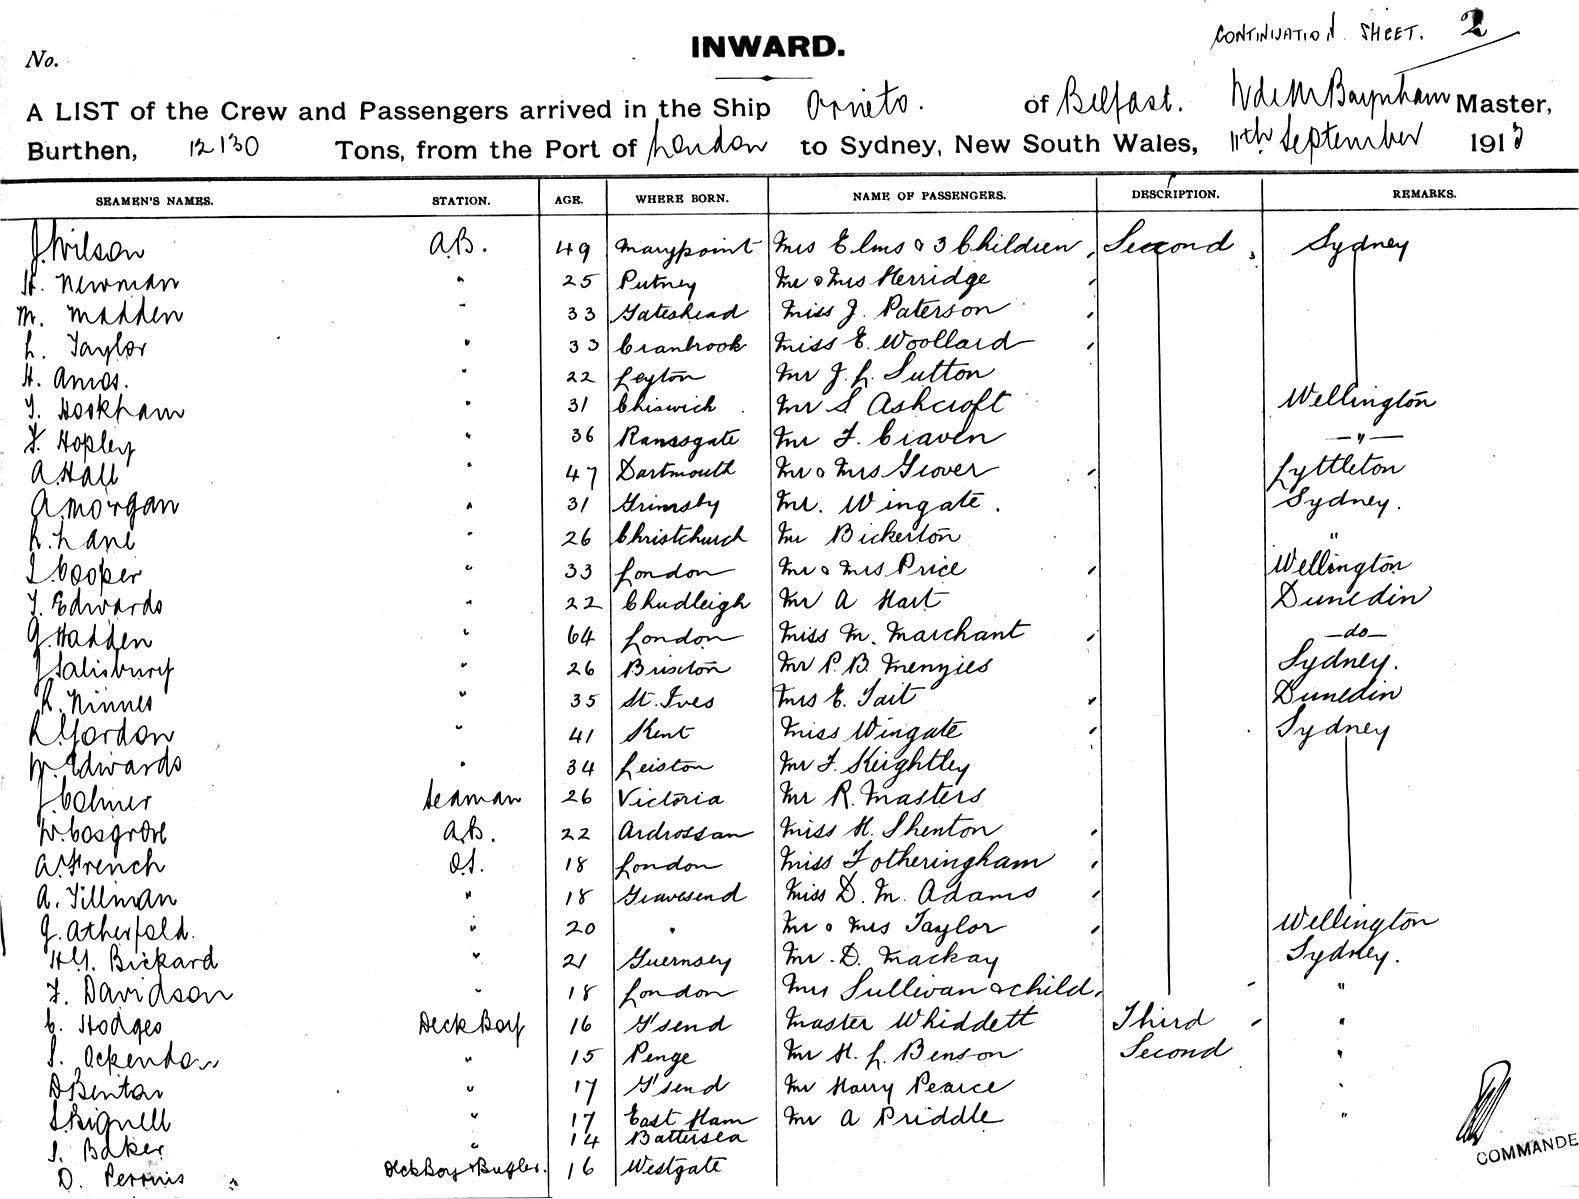 CONTINUATION SHEET. 2
INWARD.
No.
A LIST of the Crew and Passengers arrived in the Ship Orvieto. of Belfast. Master,
Burthen, 12130 Tons, from the Port of London to Sydney, New South Wales, 11th September 1913
SEAMEN'S NAMES. STATION. AGE. WHERE BORN. NAME OF PASSENGERS. DESCRIPTION. REMARKS.
J. Wilson A.B. 49 Marypoint Mrs Elms & 3 Children, Second, Sydney
H. Newman " 25 Putney Mr & Mrs Herridge
M. Madden " 33 Gateshead Miss J. Paterson
L. Taylor " 33 Cranbrook Miss E. Woollard
H. Amos. " 22 Leyton Mr J. L. Sutton
T. Hookham " 31 Chiswick Mr S Ashcroft Wellington
F. Hopley " 36 Ramsgate Mr F. Craven — " —
A. Hall " 47 Dartmouth Mr & Mrs Grover Lyttleton
A. Morgan " 31 Grimsby Mr. Wingate. Sydney.
R. Lane " 26 Christchurch Mr Bickerton "
S. Cooper " 33 London Mr & Mrs Price Wellington
T. Edwards " 22 Chudleigh Mr A Hart Dunedin
G. Hadden " 64 London Miss M. Marchant —do—
J Salisbury " 26 Brixton Mr P. B. Menzies Sydney.
R. Ninnes " 35 St. Ives Mrs E. Tait Dunedin
R. Gordon " 41 Kent Miss Wingate Sydney
W. Edwards " 34 Leiston Mr F. Keightley
J. Colmer Seaman 26 Victoria Mr R. Masters
W. Cosgrove A.B. 22 Ardrossan Miss H. Shenton
A. French O.S. 18 London Miss Fotheringham
A. Tillman " 18 Gravesend Miss D. M. Adams
G. Atherfold. " 20 " Mr & Mrs Taylor Wellington
H. G. Bickard " 21 Guernsey Mr. D. Mackay Sydney.
F. Davidson " 18 London Mrs Sullivan & child, "
C. Hodges Deck Boy 16 G'send Master Whiddett Third "
S. Ockendon " 15 Penge Mr H. L. Benson Second "
D Benton " 17 G'send Mr Harry Pearce "
S. Bignell " 17 East Ham Mr A Priddle "
S. Baker " 14 Battersea
D. Perrins Deck Boy & Bugler. 16 Westgate
COMMANDE